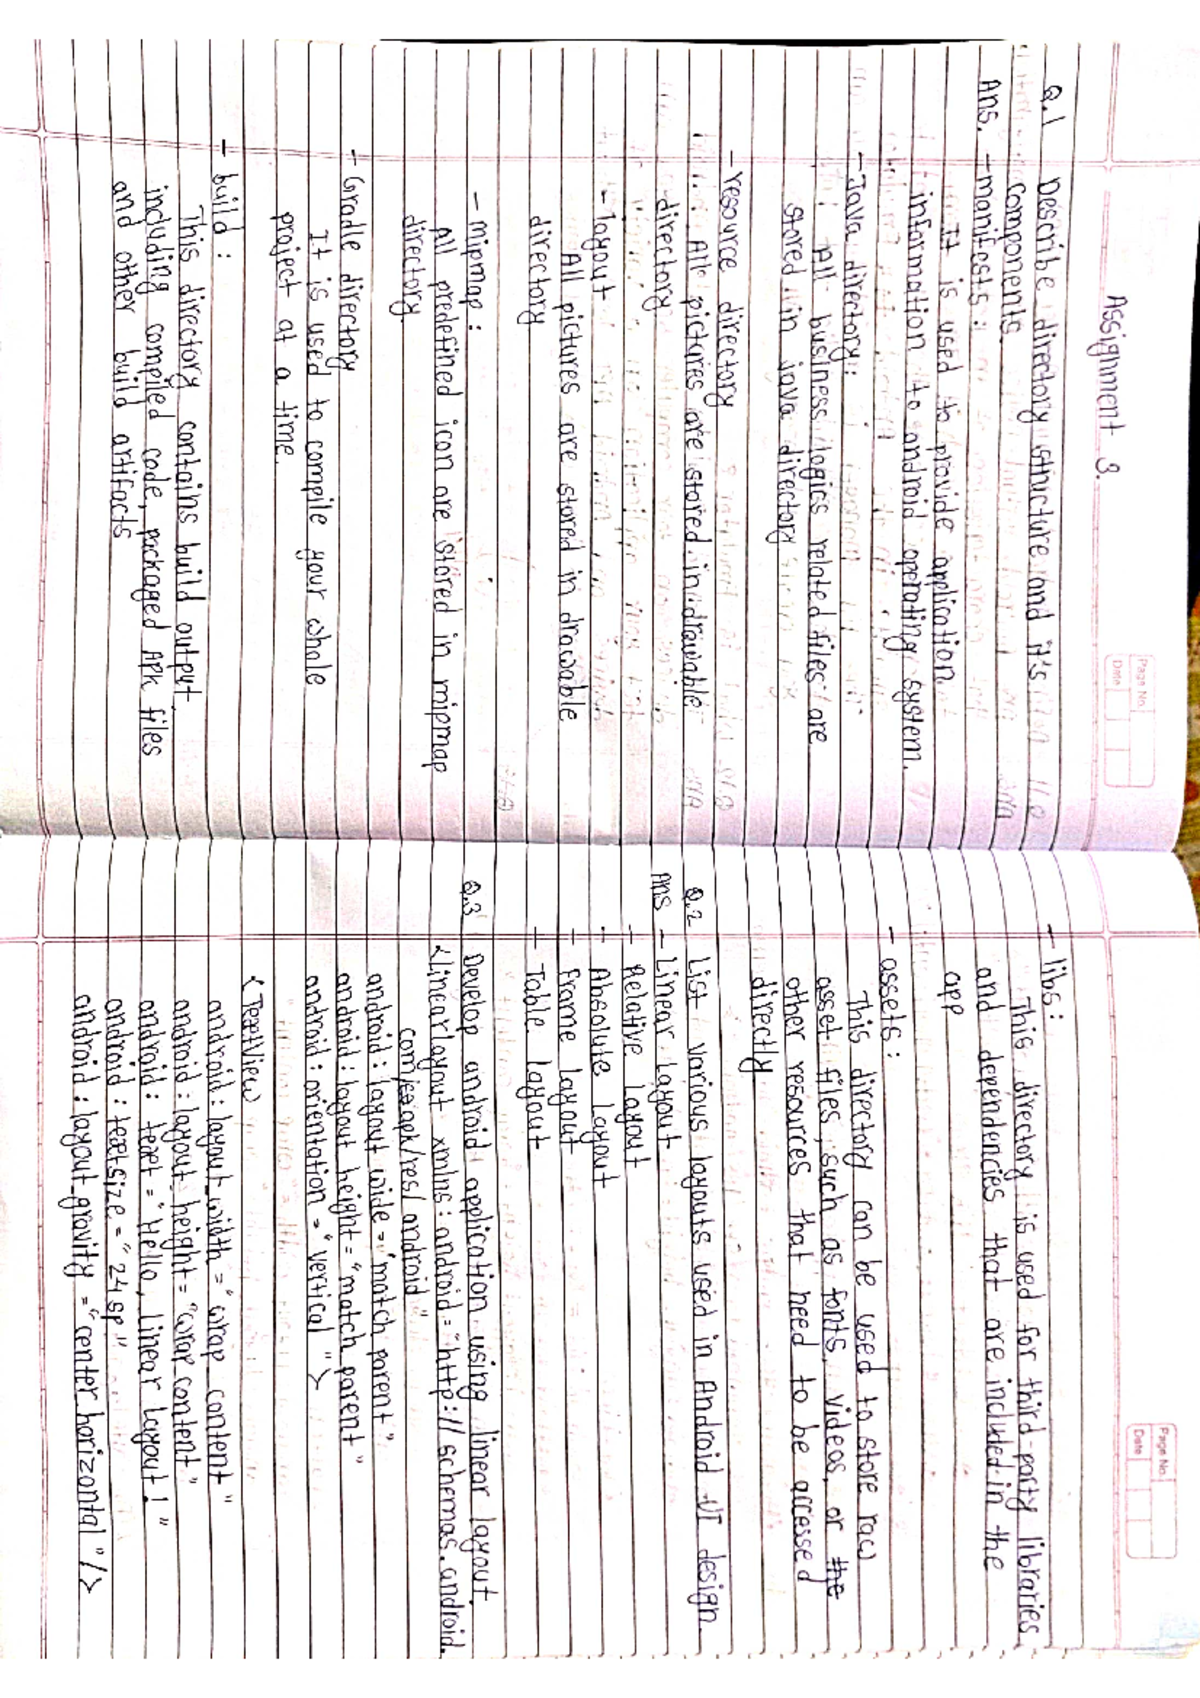 Assignment 3.
Page No.
Date
Q.1 Describe directory structure and it's
components.
Ans. - manifests:
It is used to provide application
information to android operating system.
- Java directory:
All business logics related files are
stored in java directory
- resource directory
All pictures are stored in drawable
directory
- layout
All pictures are stored in drawable
directory
- mipmap:
All predefined icon are stored in mipmap
directory.
- Gradle directory
It is used to compile your whole
project at a time.
- build:
This directory contains build output
including compiled code, packaged APK files
and other build artifacts
Page No.
Date
- libs:
This directory is used for third-party libraries
and dependencies that are included in the
app
- assets:
This directory can be used to store raw
asset files, such as fonts, videos, or the
other resources that need to be accessed
directly
Q.2 List various layouts used in Android UI design
Ans - Linear Layout
- Relative Layout
- Absolute Layout
- Frame layout
- Table layout
Q.3 Develop android application using linear layout.
<linearlayout xmlns:android="http://schemas.android.
com/apk/res/android"
android:layout wide="match parent"
android:layout height="match parent"
android:orientation="vertical">
<TextView
android:layout_width="wrap content"
android:layout_height="wrap content"
android:text="Hello, linear Layout!"
android:textsize="24sp"
android:layout_gravity="center horizontal"/>